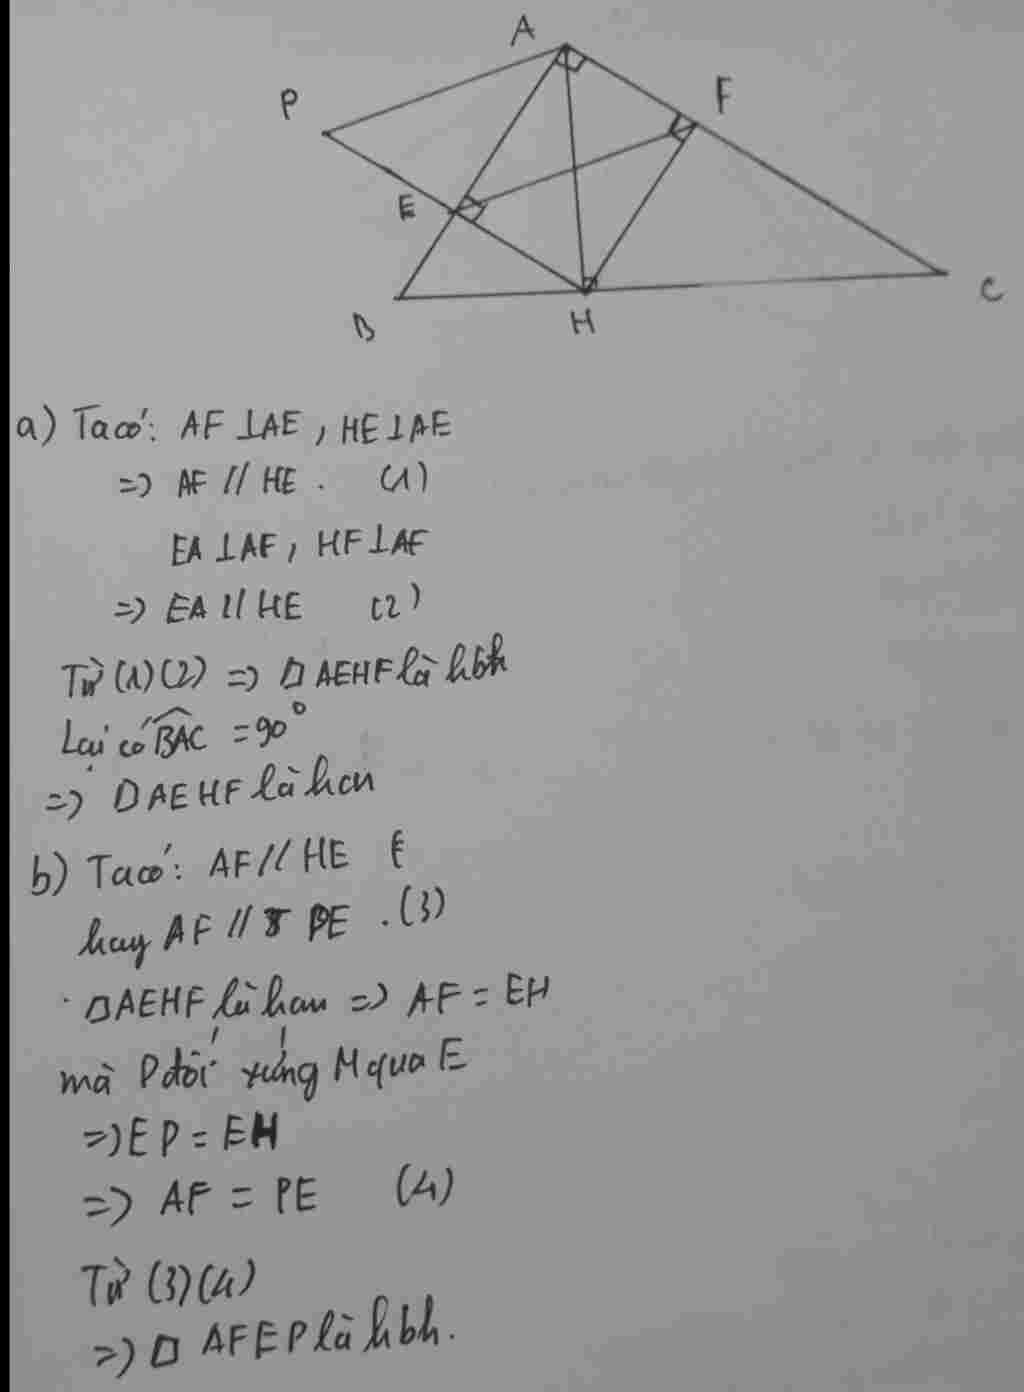 A
P
F
E
B
H
C
a) Ta có: AF ⊥ AE , HE ⊥ AE
=> AF // HE . (1)
EA ⊥ AF , HF ⊥ AF
=> EA // HE (2)
Từ (1) (2) => □ AEHF là hbh
Lại có \widehat{BAC} = 90°
=> □ AEHF là hcn
b) Ta có: AF // HE
hay AF // PE . (3)
. □ AEHF là hcn => AF = EH
mà P đối xứng M qua E
=> EP = EH
=> AF = PE (4)
Từ (3) (4)
=> □ AFEP là hbh.